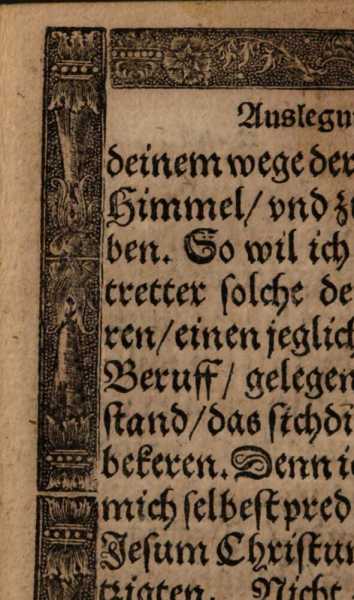 Auslegu
deinem wege der
Himmel/ vnd zu
ben. So wil ich
tretter solche de
ren/einen jeglich
Beruff/ gelegen
stand/das sich di
bekeren. Denn i
mich selbest pred
Jesum Christum
trigten. Nicht